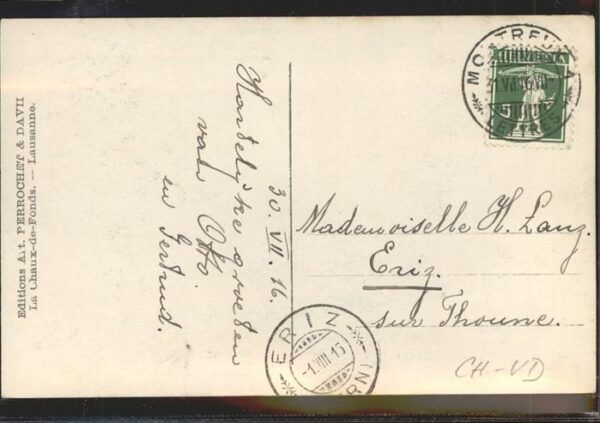 Editions Art. PERROCHET & DAVID
La Chaux-de-Fonds. — Lausanne.
30. VII. 16.
Hartelijke groeten
van Otto
en Gertrud.
MONTREUX
31.VII.16.VII
LETTRES
Mademoiselle H. Lanz.
Eriz.
sur Thoune.
ERIZ
(BERN)
CH-VD